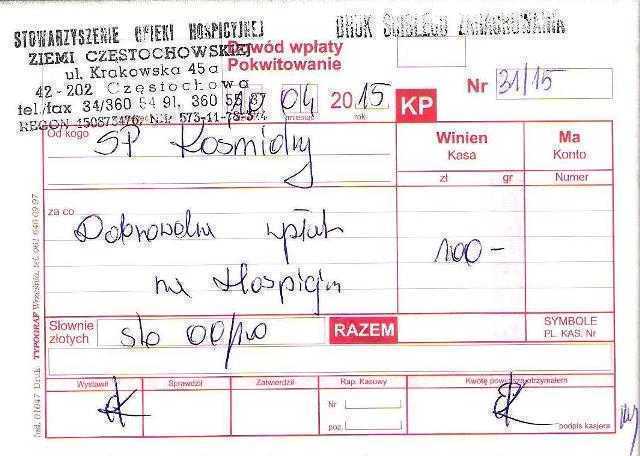 STOWARZYSZENIE OPIEKI HOSPICYJNEJ
ZIEMI CZĘSTOCHOWSKIEJ
ul. Krakowska 45a
42-202 Częstochowa
tel./fax 34/360 54 91, 360 55
REGON 150873476,
DRUK ŚCISŁEGO ZARACHOWANIA
Dowód wpłaty
Pokwitowanie
04 2015
rok
KP
Nr 31/15
Od kogo
SP Kośmidry
Winien
Kasa
Ma
Konto
zł gr
Numer
za co
Dobrowolna wpłata
na Hospicjum
100-
Słownie
złotych
sto 00/100
RAZEM
SYMBOLE
PL. KAS. Nr
Wystawił
Sprawdził
Zatwierdził
Rap. Kasowy
Kwotę powyższą otrzymałem
Nr
poz.
podpis kasjera
TYPOGRAF Września, tel.
Druk